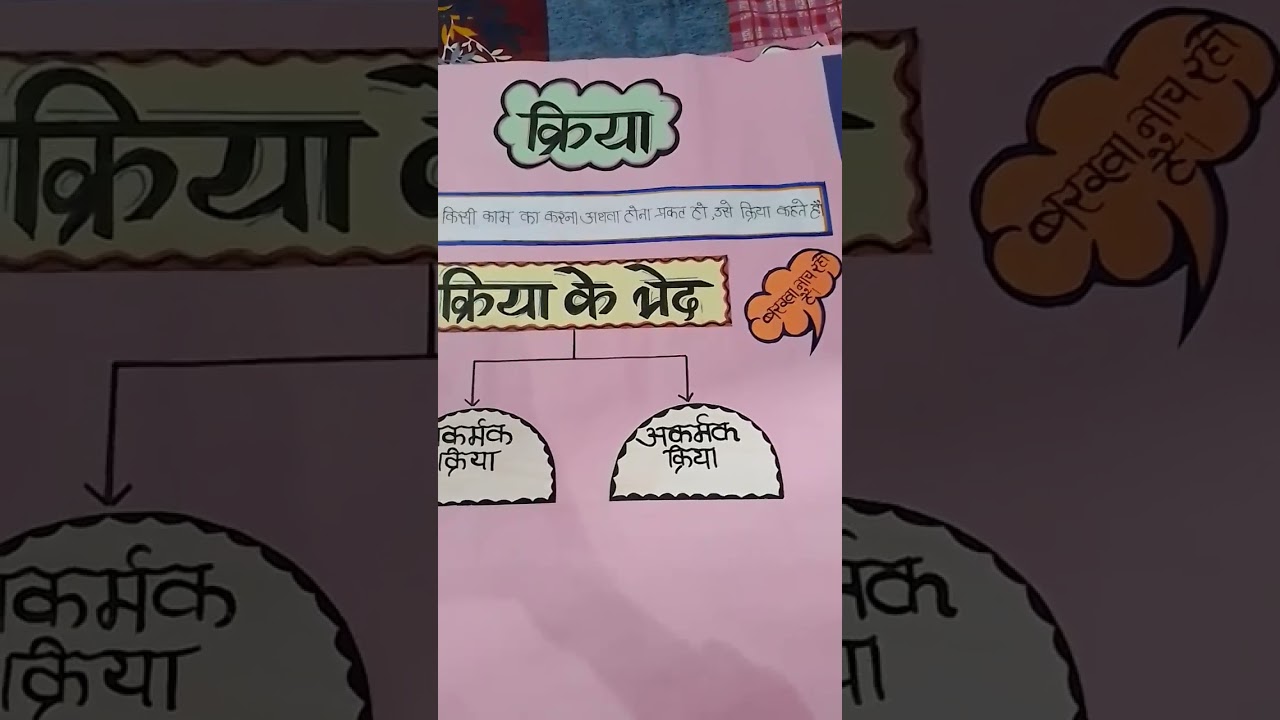 क्रिया
किसी काम का करना अथवा होना प्रकट हो उसे क्रिया कहते हैं
क्रिया के भेद
बरखा नाच रही
है।
कर्मक
क्रिया
अकर्मक
क्रिया